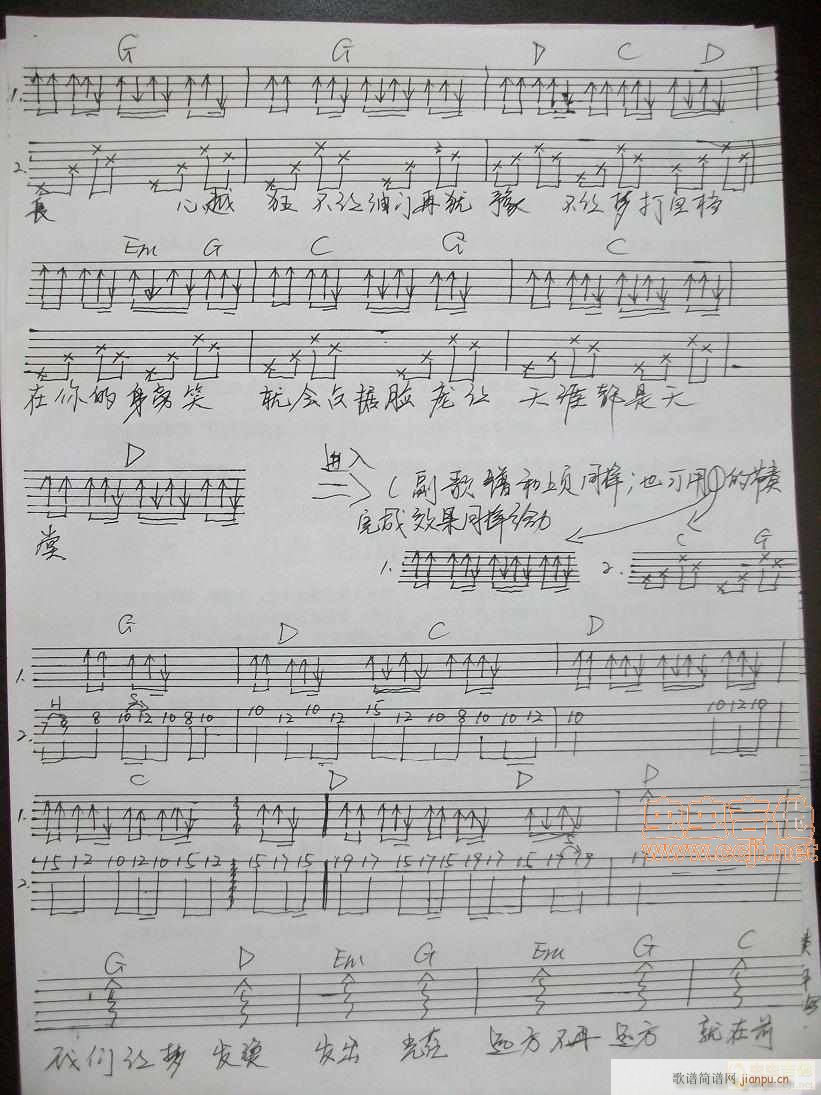 G G D C D
1.
2.
長 心越 狂 不让细再犹 豫 不让梦打
Em G C G C
在你的身旁笑 就会占据脸庞让 天涯都是天
D 进入
(副歌谱和上页同样;也可用①的节奏
堂 完成效果同样
1. 2. C G
G D C D
1.
H S
2. 7 9 8 10 12 10 8 10 10 12 10 12 15 12 10 8 10 10 12 10 10 12 10
C D D D
1.
15 12 10 12 10 15 12 15 17 15 19 17 15 17 15 19 17 15 17 19 17
2.
G D Em G Em G C
我们让梦 发 发出 光 远方不再 远方 就在前
虫虫吉他
www.ccjt.net
歌谱简谱网 jianpu.cn